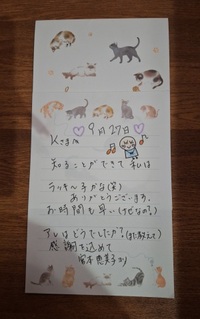 9月27日
Kさまへ
知ることができて私は
ラッキー子かな(笑)
ありがとうございます。
お時間も早い(けどなの?)
アレはどうでしたか?(また教えて)
感謝を込めて